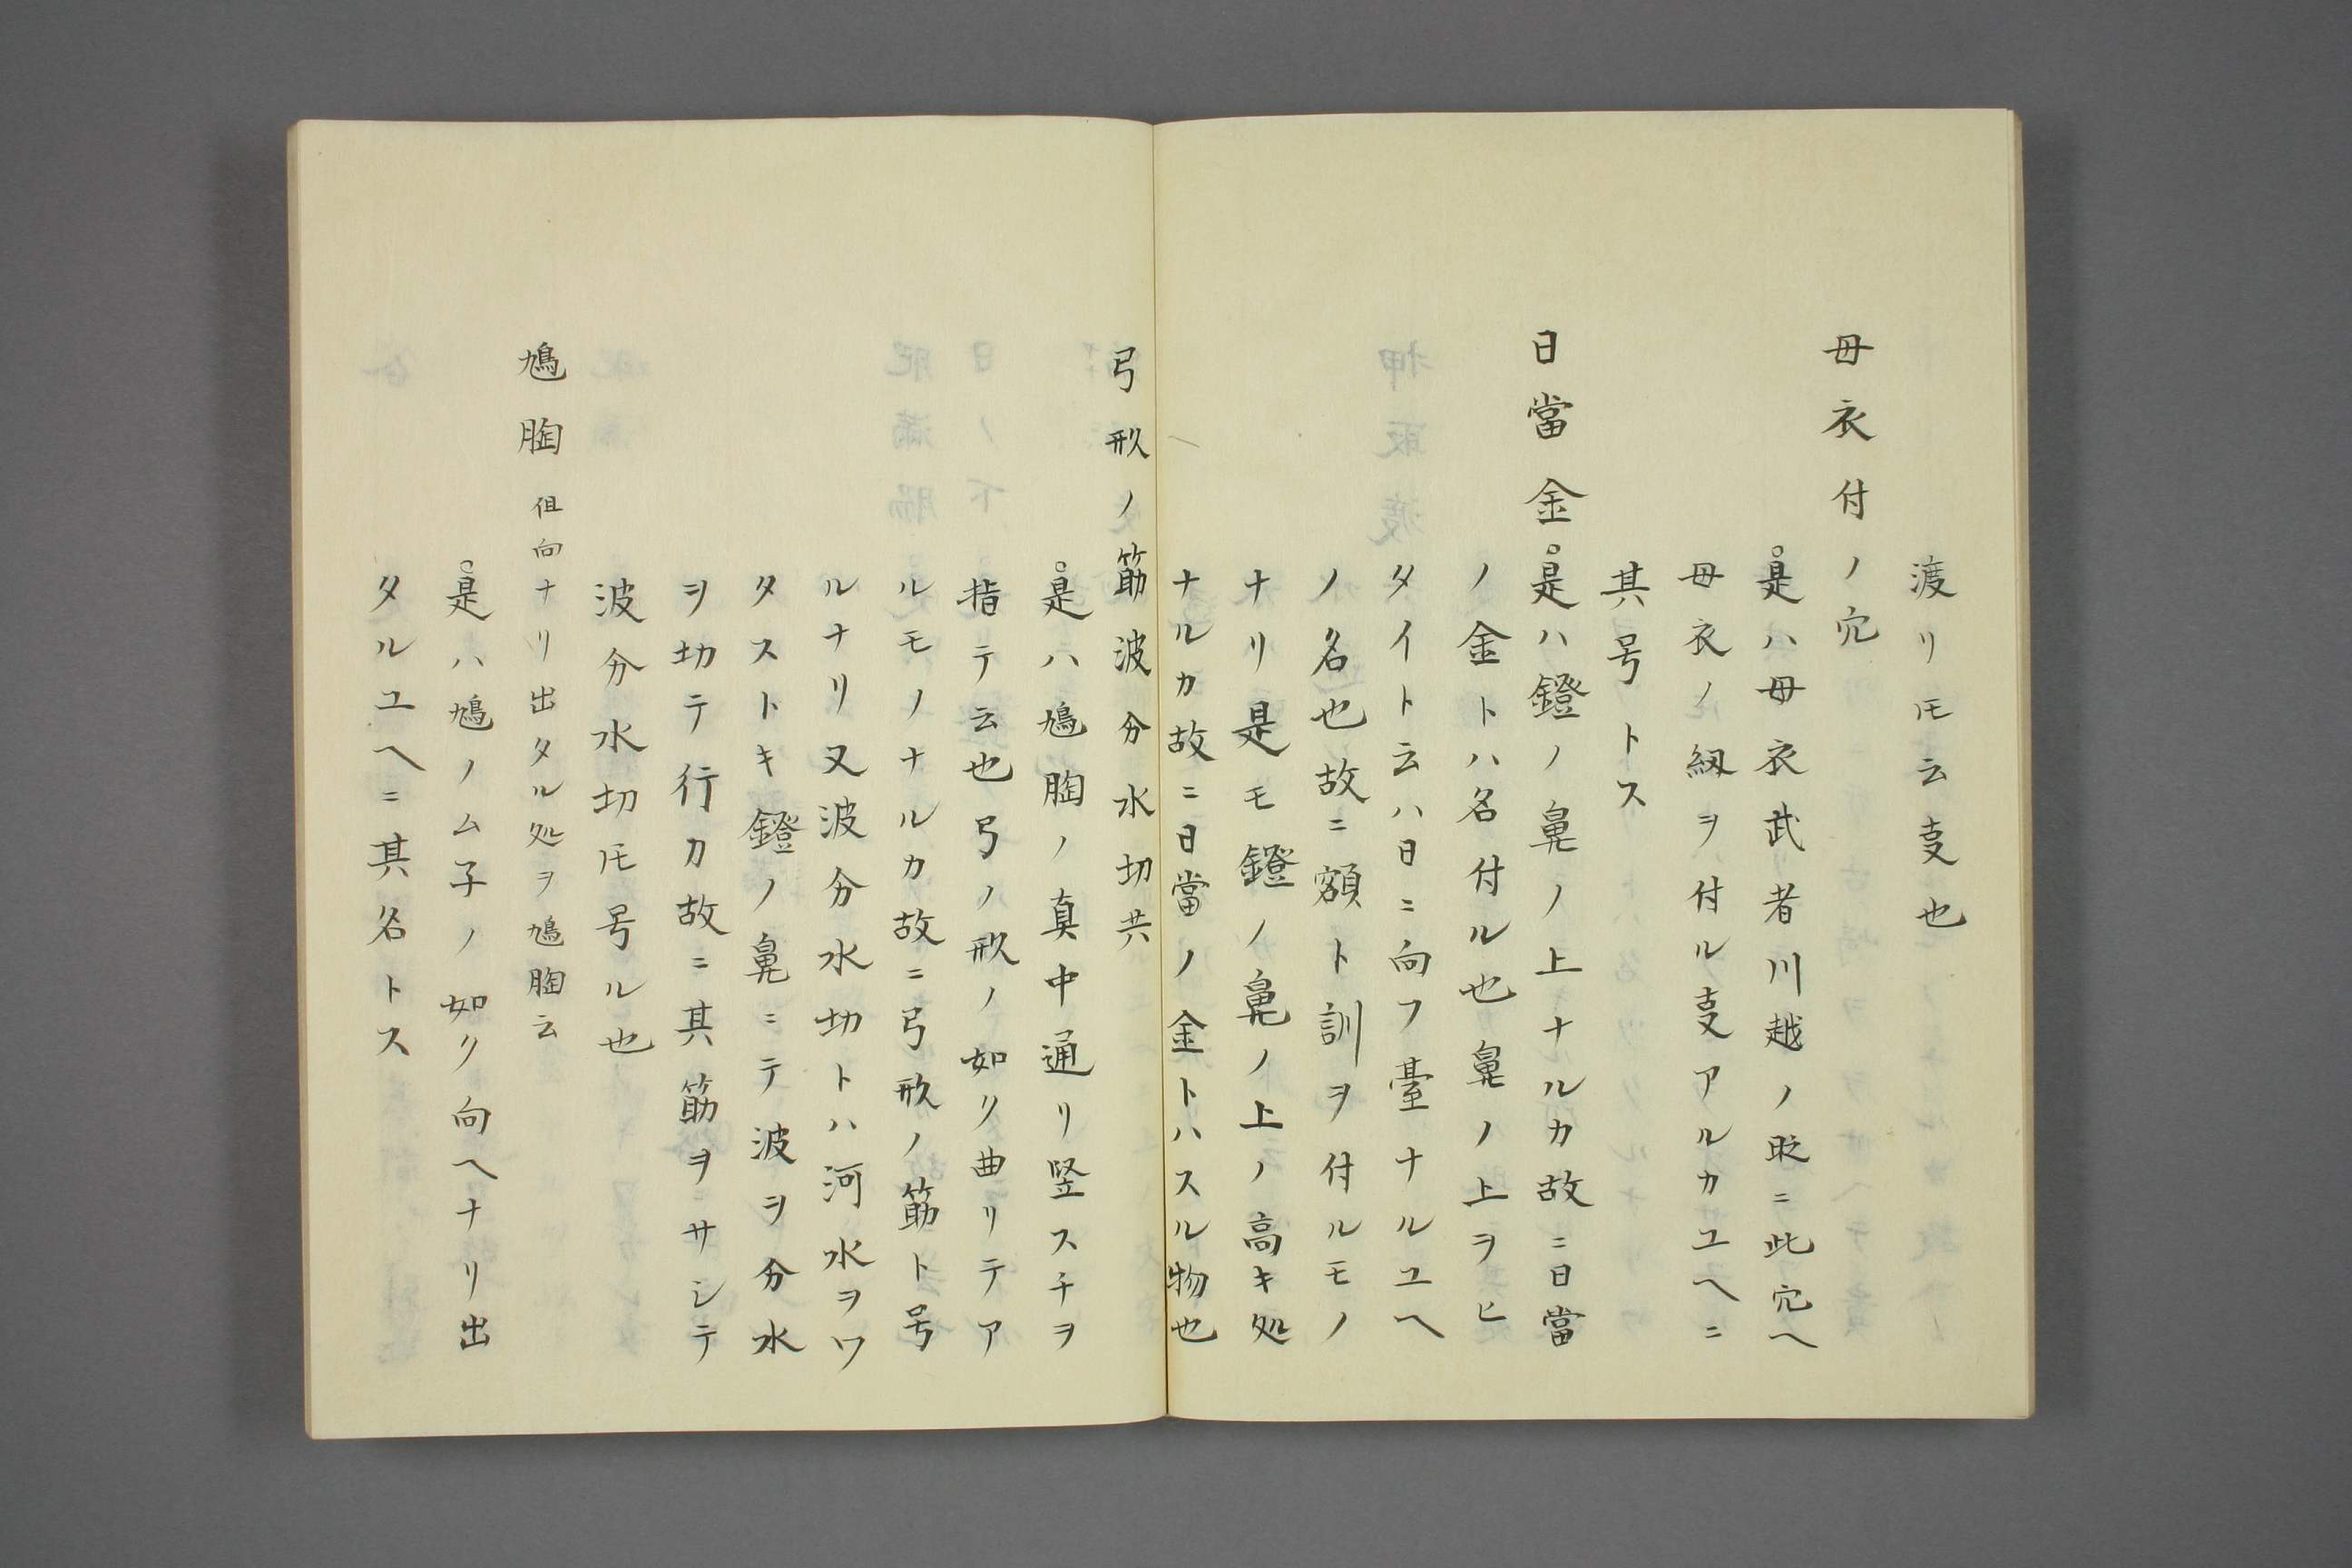 渡リ𪜈云叓也
母衣付ノ穴
是ハ母衣武者川越ノ時ニ此穴ヘ
母衣ノ紐ヲ付ル叓アルカユヘニ
其号トス
日當金 是ハ鐙ノ鼻ノ上ナルカ故ニ日當
ノ金トハ名付ル也鼻ノ上ヲヒ
タイト云ハ日ニ向フ臺ナルユヘ
ノ名也故ニ額ト訓ヲ付ルモノ
ナリ是モ鐙ノ鼻ノ上ノ高キ処
ナルカ故ニ日當ノ金トハスル物也
弓形ノ筋波分水切共
是ハ鳩胸ノ真中通リ竪スチヲ
指テ云也弓ノ形ノ如ク曲リテア
ルモノナルカ故ニ弓形ノ筋ト号
ルナリ又波分水切トハ河水ヲワ
タストキ鐙ノ鼻ニテ波ヲ分水
ヲ切テ行カ故ニ其筋ヲサシテ
波分水切𪜈号ル也
鳩胸 但向ナリ出タル処ヲ鳩胸云
是ハ鳩ノム子ノ如ク向ヘナリ出
タルユヘニ其名トス